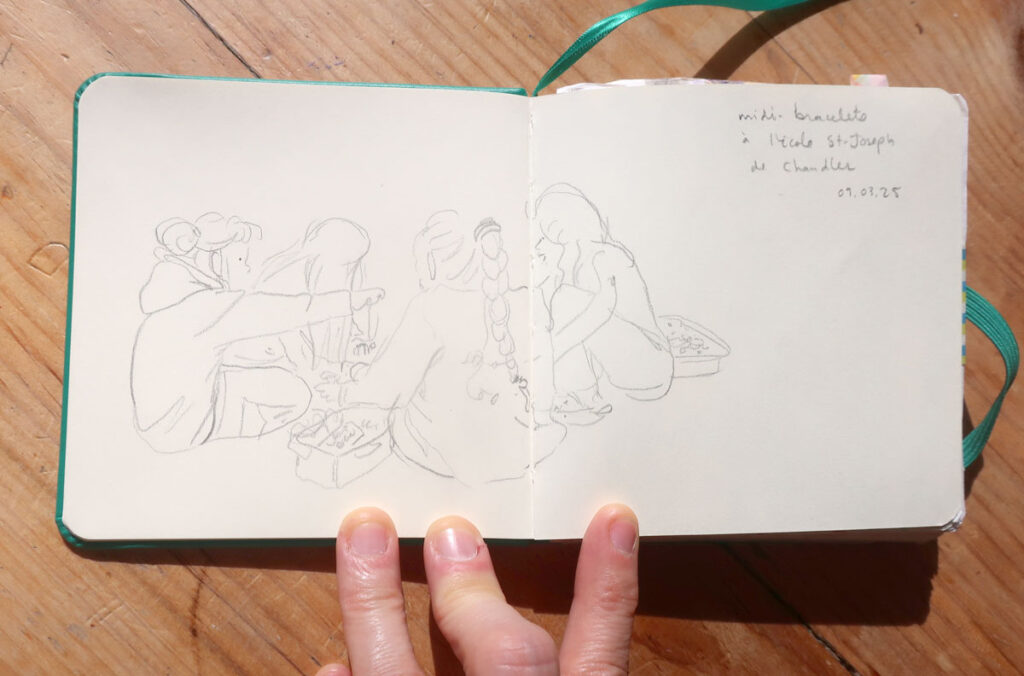 midi-bracelets
à l'école St-Joseph
de Chandler
09.03.25